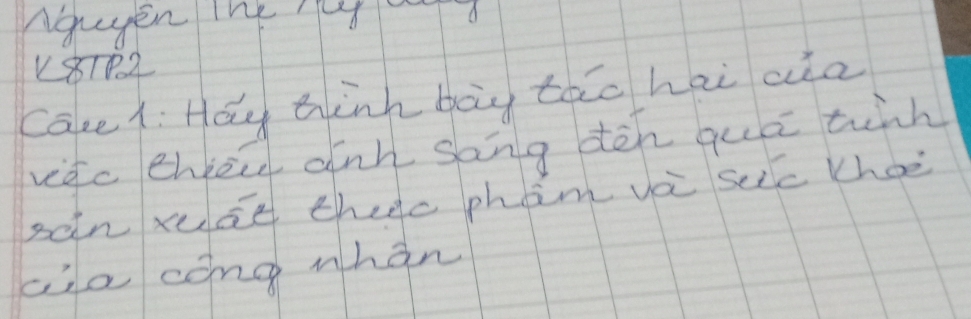 Nguyễn Thị
K8TP2
Câu 1: Hãy trình bày tác hại của
việc thiếu ánh sáng đến quá trình
sản xuất thực phẩm và sức khoẻ
của công nhân